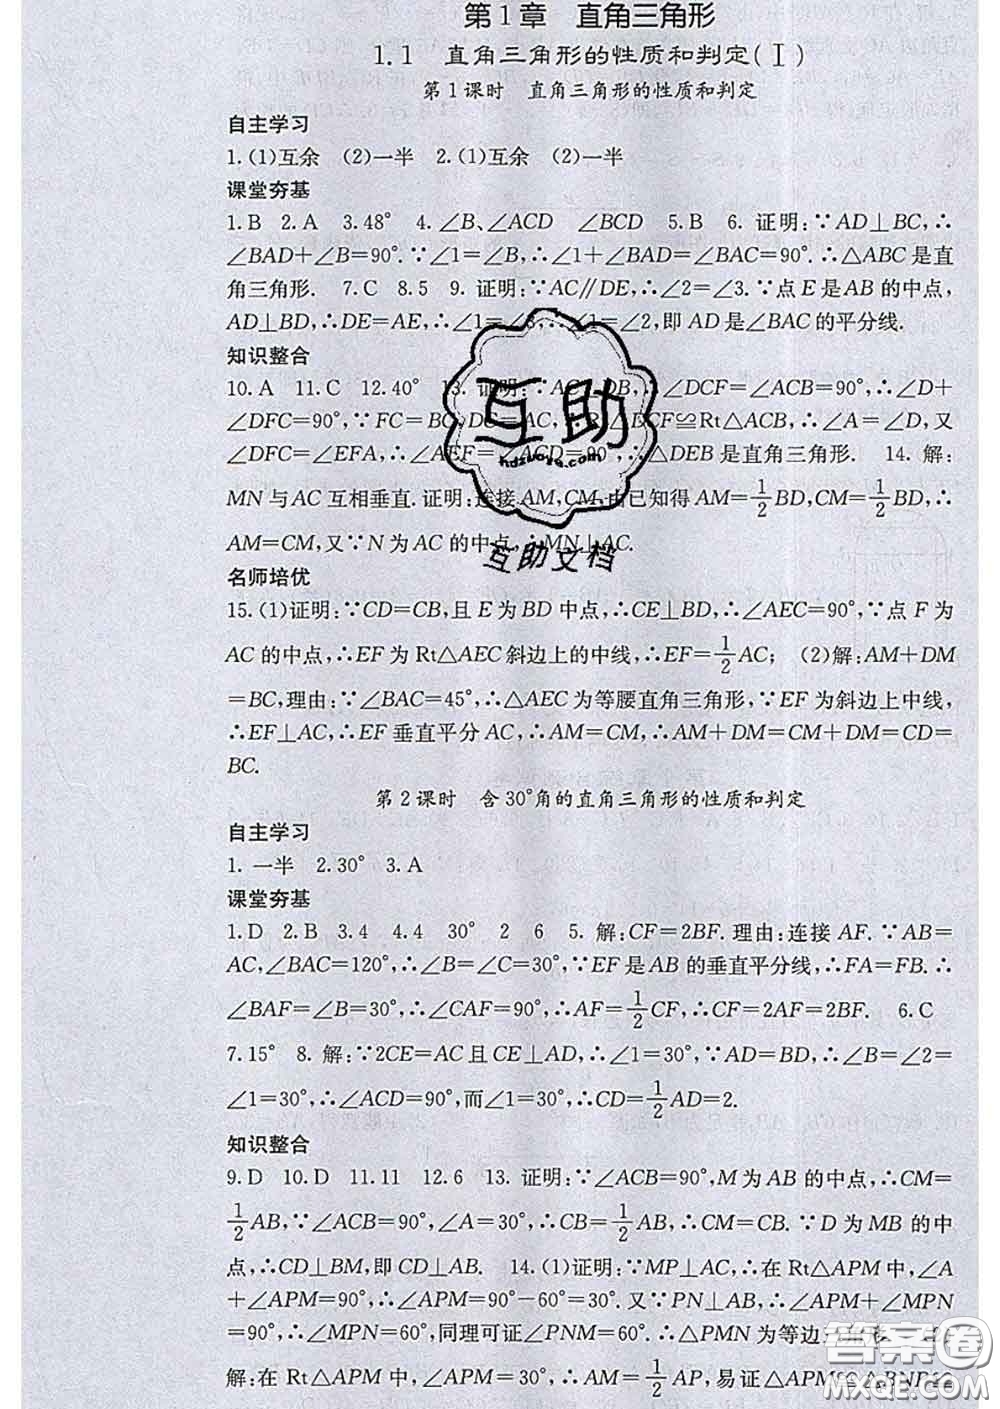 第1章　直角三角形
1.1　直角三角形的性质和判定(Ⅰ)
第1课时　直角三角形的性质和判定
自主学习
1.(1)互余　(2)一半　2.(1)互余　(2)一半
课堂夯基
1.B　2.A　3.48°　4.∠B、∠ACD　∠BCD　5.B　6.证明:∵AD⊥BC,∴
∠BAD+∠B=90°.∵∠1=∠B,∴∠1+∠BAD=∠BAC=90°.∴△ABC是直
角三角形.　7.C　8.5　9.证明:∵AC∥DE,∴∠2=∠3.∵点E是AB的中点,
AD⊥BD,∴DE=AE,∴∠1=∠3,∴∠1=∠2,即AD是∠BAC的平分线.
知识整合
10.A　11.C　12.40°　13.证明:∵AC⊥DB,∴∠DCF=∠ACB=90°,∴∠D+
∠DFC=90°,∵FC=BC,DC=AC,∴Rt△DCF≌Rt△ACB,∴∠A=∠D,又
∠DFC=∠EFA,∴∠AEF=∠ACD=90°,∴△DEB是直角三角形.　14.解:
MN与AC互相垂直.证明:连接AM,CM,由已知得AM=1/2BD,CM=1/2BD,∴
AM=CM,又∵N为AC的中点,∴MN⊥AC.
名师培优
15.(1)证明:∵CD=CB,且E为BD中点,∴CE⊥BD,∴∠AEC=90°,∵点F为
AC的中点,∴EF为Rt△AEC斜边上的中线,∴EF=1/2AC;　(2)解:AM+DM
=BC,理由:∵∠BAC=45°,∴△AEC为等腰直角三角形,∵EF为斜边上中线,
∴EF⊥AC,∴EF垂直平分AC,∴AM=CM,∴AM+DM=CM+DM=CD=
BC.
第2课时　含30°角的直角三角形的性质和判定
自主学习
1.一半　2.30°　3.A
课堂夯基
1.D　2.B　3.4　4.4　30°　2　6　5.解:CF=2BF.理由:连接AF.∵AB=
AC,∠BAC=120°,∴∠B=∠C=30°,∵EF是AB的垂直平分线,∴FA=FB.∴
∠BAF=∠B=30°,∴∠CAF=90°,∴AF=1/2CF,∴CF=2AF=2BF.　6.C
7.15°　8.解:∵2CE=AC且CE⊥AD,∴∠1=30°,∵AD=BD,∴∠B=∠2=
∠1=30°,∴∠ACD=90°,而∠1=30°,∴CD=1/2AD=2.
知识整合
9.D　10.D　11.11　12.6　13.证明:∵∠ACB=90°,M为AB的中点,∴CM=
1/2AB,∵∠ACB=90°,∠A=30°,∴CB=1/2AB,∴CM=CB.∵D为MB的中
点,∴CD⊥BM,即CD⊥AB.　14.(1)证明:∵MP⊥AC,∴在Rt△APM中,∠A
+∠APM=90°,∴∠APM=90°-60°=30°.又∵PN⊥AB,∴∠APM+∠MPN
=90°,∴∠MPN=60°,同理可证∠PNM=60°.∴△PMN为等边三角形
解:在Rt△APM中,∠APM=30°,∴AM=1/2AP,易证△APM≌△BNP≌
互助
hdzuoye.com
互助文档
答案圈
MXQE.COM